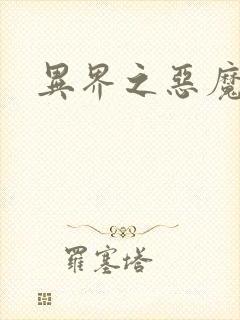 異界之惡魔
羅塞塔